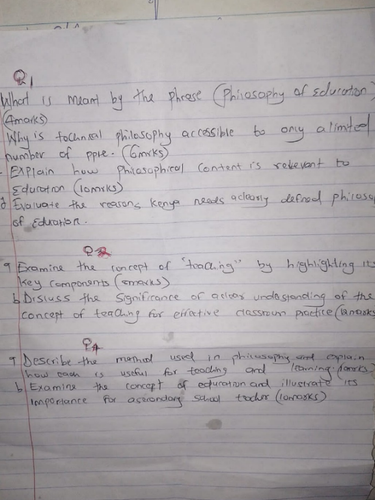 Q1
What is meant by the phrase (philosophy of Education)
(4marks)
Why is technical philosophy accessible to only a limited
number of pple. (6mrks)
Explain how philosophical content is relevant to
Education (10mrks)
d Evaluate the reasons Kenya needs a clearly defined philoso
of Eduation.
Q
a Examine the concept of "teaching" by highlighting its
key components (5marks)
b Disluss the significance of a clear understanding of the
concept of teaching for effective classroom practice (10marks
Q
Describe the method used in philosophy and explain
how each is useful for teaching and learning (10mrks)
b Examine the concept of education and illustrate its
importance for a secondary school teacher (10marks)